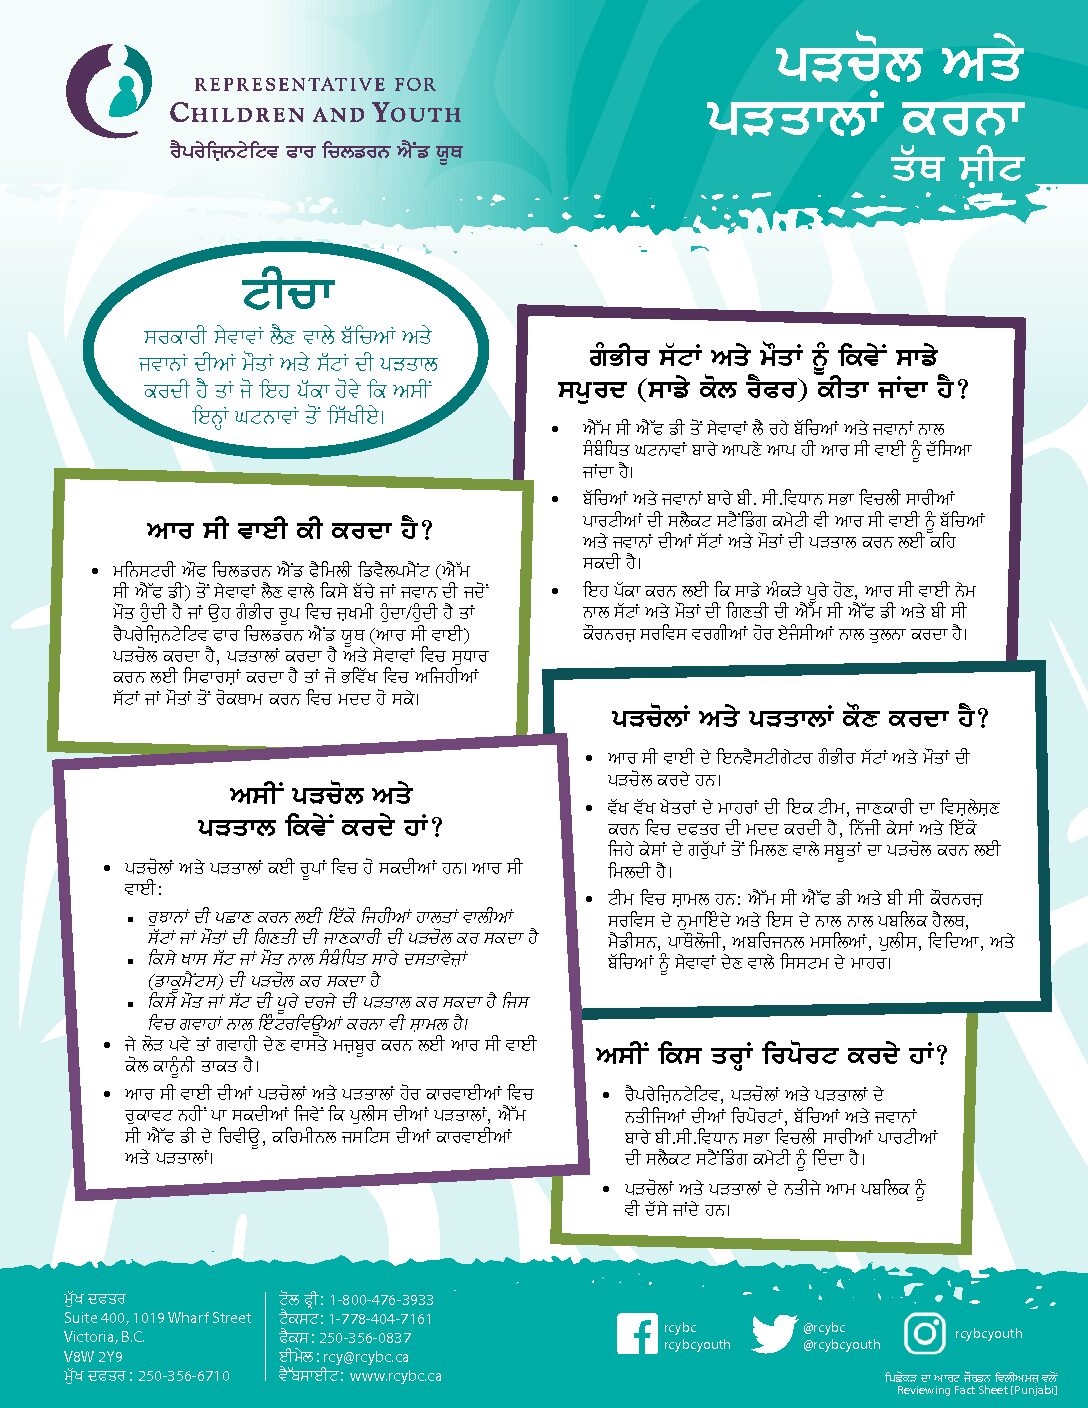 REPRESENTATIVE FOR
CHILDREN AND YOUTH
ਰੈਪਰੇਜ਼ਿਨਟੇਟਿਵ ਫਾਰ ਚਿਲਡਰਨ ਐਂਡ ਯੂਥ
ਪੜਚੋਲ ਅਤੇ
ਪੜਤਾਲਾਂ ਕਰਨਾ
ਤੱਥ ਸ਼ੀਟ
ਟੀਚਾ
ਸਰਕਾਰੀ ਸੇਵਾਵਾਂ ਲੈਣ ਵਾਲੇ ਬੱਚਿਆਂ ਅਤੇ
ਜਵਾਨਾਂ ਦੀਆਂ ਮੌਤਾਂ ਅਤੇ ਸੱਟਾਂ ਦੀ ਪੜਤਾਲ
ਕਰਦੀ ਹੈ ਤਾਂ ਜੋ ਇਹ ਪੱਕਾ ਹੋਵੇ ਕਿ ਅਸੀਂ
ਇਨ੍ਹਾਂ ਘਟਨਾਵਾਂ ਤੋਂ ਸਿੱਖੀਏ।
ਆਰ ਸੀ ਵਾਈ ਕੀ ਕਰਦਾ ਹੈ?
• ਮਨਿਸਟਰੀ ਔਫ ਚਿਲਡਰਨ ਐਂਡ ਫੈਮਿਲੀ ਡਿਵੈਲਪਮੈਂਟ (ਐੱਮ
ਸੀ ਐੱਫ ਡੀ) ਤੋਂ ਸੇਵਾਵਾਂ ਲੈਣ ਵਾਲੇ ਕਿਸੇ ਬੱਚੇ ਜਾਂ ਜਵਾਨ ਦੀ ਜਦੋਂ
ਮੌਤ ਹੁੰਦੀ ਹੈ ਜਾਂ ਉਹ ਗੰਭੀਰ ਰੂਪ ਵਿਚ ਜ਼ਖਮੀ ਹੁੰਦਾ/ਹੁੰਦੀ ਹੈ ਤਾਂ
ਰੈਪਰੇਜ਼ਿਨਟੇਟਿਵ ਫਾਰ ਚਿਲਡਰਨ ਐਂਡ ਯੂਥ (ਆਰ ਸੀ ਵਾਈ)
ਪੜਚੋਲ ਕਰਦਾ ਹੈ, ਪੜਤਾਲਾਂ ਕਰਦਾ ਹੈ ਅਤੇ ਸੇਵਾਵਾਂ ਵਿਚ ਸੁਧਾਰ
ਕਰਨ ਲਈ ਸਿਫਾਰਸ਼ਾਂ ਕਰਦਾ ਹੈ ਤਾਂ ਜੋ ਭਵਿੱਖ ਵਿਚ ਅਜਿਹੀਆਂ
ਸੱਟਾਂ ਜਾਂ ਮੌਤਾਂ ਤੋਂ ਰੋਕਥਾਮ ਕਰਨ ਵਿਚ ਮਦਦ ਹੋ ਸਕੇ।
ਅਸੀਂ ਪੜਚੋਲ ਅਤੇ
ਪੜਤਾਲ ਕਿਵੇਂ ਕਰਦੇ ਹਾਂ?
• ਪੜਚੋਲਾਂ ਅਤੇ ਪੜਤਾਲਾਂ ਕਈ ਰੂਪਾਂ ਵਿਚ ਹੋ ਸਕਦੀਆਂ ਹਨ। ਆਰ ਸੀ
ਵਾਈ:
▪ ਰੁਝਾਨਾਂ ਦੀ ਪਛਾਣ ਕਰਨ ਲਈ ਇੱਕੋ ਜਿਹੀਆਂ ਹਾਲਤਾਂ ਵਾਲੀਆਂ
ਸੱਟਾਂ ਜਾਂ ਮੌਤਾਂ ਦੀ ਗਿਣਤੀ ਦੀ ਜਾਣਕਾਰੀ ਦੀ ਪੜਚੋਲ ਕਰ ਸਕਦਾ ਹੈ
▪ ਕਿਸੇ ਖਾਸ ਸੱਟ ਜਾਂ ਮੌਤ ਨਾਲ ਸੰਬੰਧਿਤ ਸਾਰੇ ਦਸਤਾਵੇਜ਼ਾਂ
(ਡਾਕੂਮੈਂਟਸ) ਦੀ ਪੜਚੋਲ ਕਰ ਸਕਦਾ ਹੈ
▪ ਕਿਸੇ ਮੌਤ ਜਾਂ ਸੱਟ ਦੀ ਪੂਰੇ ਦਰਜੇ ਦੀ ਪੜਤਾਲ ਕਰ ਸਕਦਾ ਹੈ ਜਿਸ
ਵਿਚ ਗਵਾਹਾਂ ਨਾਲ ਇੰਟਰਵਿਊਆਂ ਕਰਨਾ ਵੀ ਸ਼ਾਮਲ ਹੈ।
• ਜੇ ਲੋੜ ਪਵੇ ਤਾਂ ਗਵਾਹੀ ਦੇਣ ਵਾਸਤੇ ਮਜ਼ਬੂਰ ਕਰਨ ਲਈ ਆਰ ਸੀ ਵਾਈ
ਕੋਲ ਕਾਨੂੰਨੀ ਤਾਕਤ ਹੈ।
• ਆਰ ਸੀ ਵਾਈ ਦੀਆਂ ਪੜਚੋਲਾਂ ਅਤੇ ਪੜਤਾਲਾਂ ਹੋਰ ਕਾਰਵਾਈਆਂ ਵਿਚ
ਰੁਕਾਵਟ ਨਹੀਂ ਪਾ ਸਕਦੀਆਂ ਜਿਵੇਂ ਕਿ ਪੁਲੀਸ ਦੀਆਂ ਪੜਤਾਲਾਂ, ਐੱਮ
ਸੀ ਐੱਫ ਡੀ ਦੇ ਰਿਵੀਊ, ਕਰਿਮੀਨਲ ਜਸਟਿਸ ਦੀਆਂ ਕਾਰਵਾਈਆਂ
ਅਤੇ ਪੜਤਾਲਾਂ।
ਗੰਭੀਰ ਸੱਟਾਂ ਅਤੇ ਮੌਤਾਂ ਨੂੰ ਕਿਵੇਂ ਸਾਡੇ
ਸਪੁਰਦ (ਸਾਡੇ ਕੋਲ ਰੈਫਰ) ਕੀਤਾ ਜਾਂਦਾ ਹੈ?
• ਐੱਮ ਸੀ ਐੱਫ ਡੀ ਤੋਂ ਸੇਵਾਵਾਂ ਲੈ ਰਹੇ ਬੱਚਿਆਂ ਅਤੇ ਜਵਾਨਾਂ ਨਾਲ
ਸੰਬੰਧਿਤ ਘਟਨਾਵਾਂ ਬਾਰੇ ਆਪਣੇ ਆਪ ਹੀ ਆਰ ਸੀ ਵਾਈ ਨੂੰ ਦੱਸਿਆ
ਜਾਂਦਾ ਹੈ।
• ਬੱਚਿਆਂ ਅਤੇ ਜਵਾਨਾਂ ਬਾਰੇ ਬੀ. ਸੀ.ਵਿਧਾਨ ਸਭਾ ਵਿਚਲੀ ਸਾਰੀਆਂ
ਪਾਰਟੀਆਂ ਦੀ ਸਲੈਕਟ ਸਟੈਂਡਿੰਗ ਕਮੇਟੀ ਵੀ ਆਰ ਸੀ ਵਾਈ ਨੂੰ ਬੱਚਿਆਂ
ਅਤੇ ਜਵਾਨਾਂ ਦੀਆਂ ਸੱਟਾਂ ਅਤੇ ਮੌਤਾਂ ਦੀ ਪੜਤਾਲ ਕਰਨ ਲਈ ਕਹਿ
ਸਕਦੀ ਹੈ।
• ਇਹ ਪੱਕਾ ਕਰਨ ਲਈ ਕਿ ਸਾਡੇ ਅੰਕੜੇ ਪੂਰੇ ਹੋਣ, ਆਰ ਸੀ ਵਾਈ ਨੇਮ
ਨਾਲ ਸੱਟਾਂ ਅਤੇ ਮੌਤਾਂ ਦੀ ਗਿਣਤੀ ਦੀ ਐੱਮ ਸੀ ਐੱਫ ਡੀ ਅਤੇ ਬੀ ਸੀ
ਕੌਰਨਰਜ਼ ਸਰਵਿਸ ਵਰਗੀਆਂ ਹੋਰ ਏਜੰਸੀਆਂ ਨਾਲ ਤੁਲਨਾ ਕਰਦਾ ਹੈ।
ਪੜਚੋਲਾਂ ਅਤੇ ਪੜਤਾਲਾਂ ਕੌਣ ਕਰਦਾ ਹੈ?
• ਆਰ ਸੀ ਵਾਈ ਦੇ ਇਨਵੈਸਟੀਗੇਟਰ ਗੰਭੀਰ ਸੱਟਾਂ ਅਤੇ ਮੌਤਾਂ ਦੀ
ਪੜਚੋਲ ਕਰਦੇ ਹਨ।
• ਵੱਖ ਵੱਖ ਖੇਤਰਾਂ ਦੇ ਮਾਹਰਾਂ ਦੀ ਇਕ ਟੀਮ, ਜਾਣਕਾਰੀ ਦਾ ਵਿਸ਼ਲੇਸ਼ਣ
ਕਰਨ ਵਿਚ ਦਫਤਰ ਦੀ ਮਦਦ ਕਰਦੀ ਹੈ, ਨਿੱਜੀ ਕੇਸਾਂ ਅਤੇ ਇੱਕੋ
ਜਿਹੇ ਕੇਸਾਂ ਦੇ ਗਰੁੱਪਾਂ ਤੋਂ ਮਿਲਣ ਵਾਲੇ ਸਬੂਤਾਂ ਦਾ ਪੜਚੋਲ ਕਰਨ ਲਈ
ਮਿਲਦੀ ਹੈ।
• ਟੀਮ ਵਿਚ ਸ਼ਾਮਲ ਹਨ: ਐੱਮ ਸੀ ਐੱਫ ਡੀ ਅਤੇ ਬੀ ਸੀ ਕੌਰਨਰਜ਼
ਸਰਵਿਸ ਦੇ ਨੁਮਾਇੰਦੇ ਅਤੇ ਇਸ ਦੇ ਨਾਲ ਨਾਲ ਪਬਲਿਕ ਹੈਲਥ,
ਮੈਡੀਸਨ, ਪਾਥੋਲੋਜੀ, ਅਬਰਿਜਨਲ ਮਸਲਿਆਂ, ਪੁਲੀਸ, ਵਿਦਿਆ, ਅਤੇ
ਬੱਚਿਆਂ ਨੂੰ ਸੇਵਾਵਾਂ ਦੇਣ ਵਾਲੇ ਸਿਸਟਮ ਦੇ ਮਾਹਰ।
ਅਸੀਂ ਕਿਸ ਤਰ੍ਹਾਂ ਰਿਪੋਰਟ ਕਰਦੇ ਹਾਂ?
• ਰੈਪਰੇਜ਼ਿਨਟੇਟਿਵ, ਪੜਚੋਲਾਂ ਅਤੇ ਪੜਤਾਲਾਂ ਦੇ
ਨਤੀਜਿਆਂ ਦੀਆਂ ਰਿਪੋਰਟਾਂ, ਬੱਚਿਆਂ ਅਤੇ ਜਵਾਨਾਂ
ਬਾਰੇ ਬੀ.ਸੀ.ਵਿਧਾਨ ਸਭਾ ਵਿਚਲੀ ਸਾਰੀਆਂ ਪਾਰਟੀਆਂ
ਦੀ ਸਲੈਕਟ ਸਟੈਂਡਿੰਗ ਕਮੇਟੀ ਨੂੰ ਦਿੰਦਾ ਹੈ।
• ਪੜਚੋਲਾਂ ਅਤੇ ਪੜਤਾਲਾਂ ਦੇ ਨਤੀਜੇ ਆਮ ਪਬਲਿਕ ਨੂੰ
ਵੀ ਦੱਸੇ ਜਾਂਦੇ ਹਨ।
ਮੁੱਖ ਦਫਤਰ
Suite 400, 1019 Wharf Street
Victoria, B.C.
V8W 2Y9
ਮੁੱਖ ਦਫਤਰ : 250-356-6710
ਟੋਲ ਫ੍ਰੀ: 1-800-476-3933
ਟੈਕਸਟ: 1-778-404-7161
ਫੈਕਸ: 250-356-0837
ਈਮੇਲ: rcy@rcybc.ca
ਵੈੱਬਸਾਈਟ: www.rcybc.ca
rcybc
rcybcyouth
@rcybc
@rcybcyouth
rcybcyouth
ਪਿਛੋਕੜ ਦਾ ਆਰਟ ਜੋਰਡਨ ਵਿਲੀਅਮਜ਼ ਵਲੋਂ
Reviewing Fact Sheet [Punjabi]